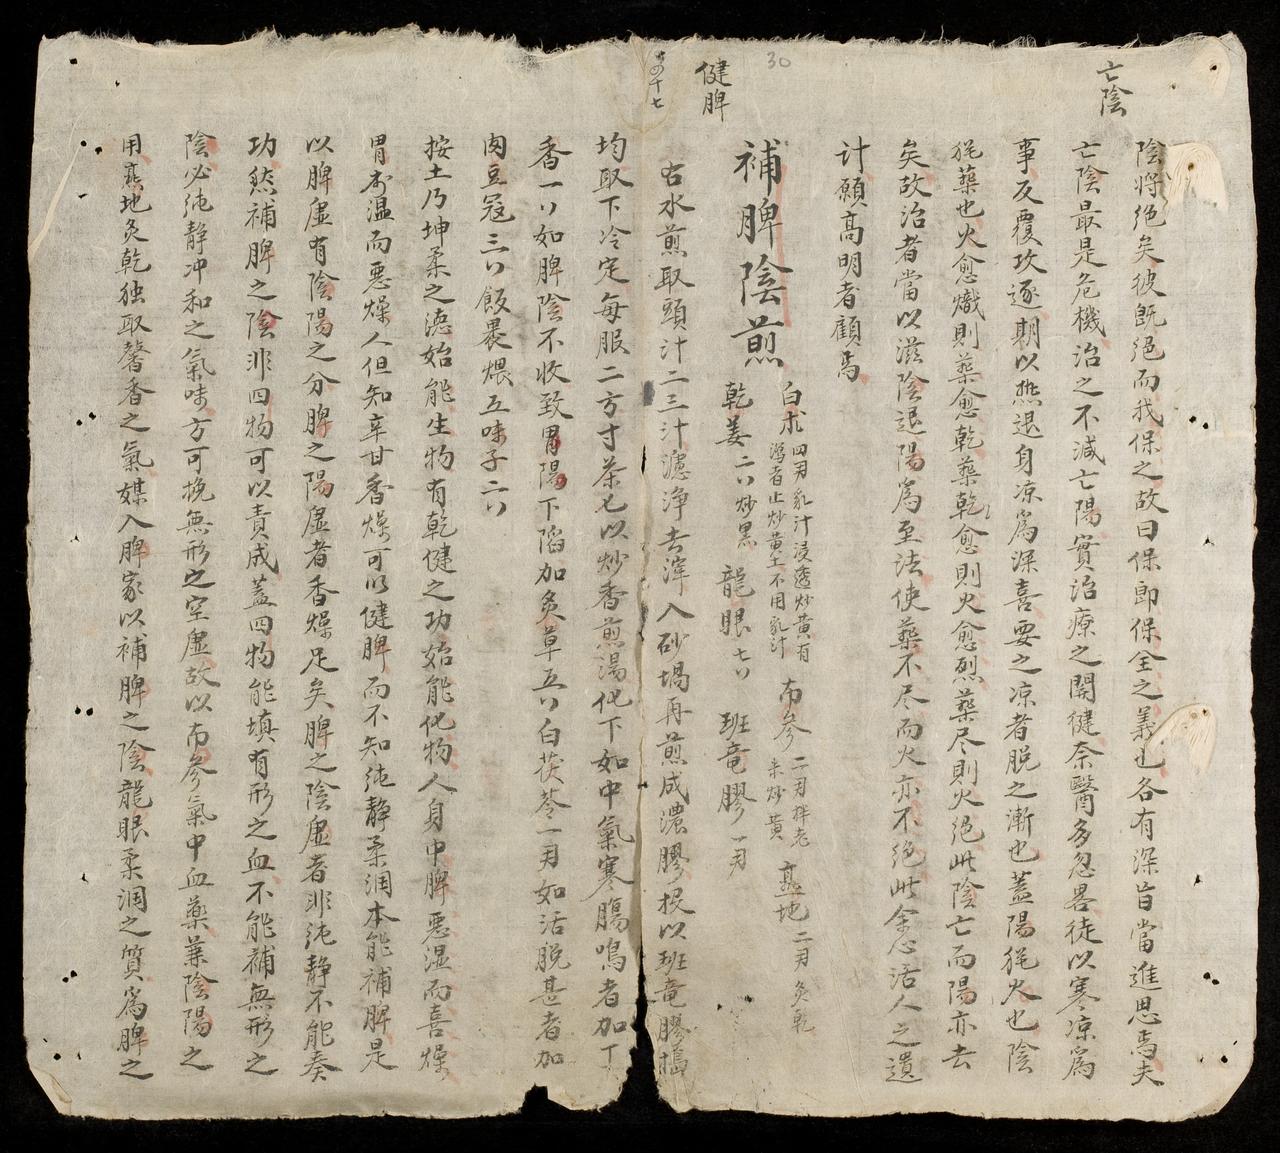 亡陰
陰將絕矣彼既絕而我保之故曰保即保全之義也各有深旨當進思焉夫
亡陰最是危機治之不減亡陽實治療之關健奈醫多忽畧徒以寒凉爲
事反覆攻逐期以熱退身凉爲深喜要之凉者脱之漸也蓋陽猶火也陰
猶藥也火愈熾則藥愈乾藥乾愈則火愈烈藥尽則火絕此陰亡而陽亦去
矣故治者當以滋陰退陽爲至法使藥不尽而火亦不絕此余心活人之遺
計願高明者顧焉
健脾
30
補脾陰煎
白朮四刄乳汁浸透炒黄有瀉者止炒黄土不用乳汁 布参二刄拌老米炒黄 熟地二刄炙乾
乾姜二𠔃炒黑 龍眼七𠔃 班竜膠一刄
十七
右水煎取頭汁二三汁濾淨去滓入砂堝再煎成濃膠投以班竜膠搗
均取下冷定每服二方寸茶匕以炒香煎湯化下如中氣寒腸鳴者加丁
香一𠔃如脾陰不收致胃陽下陷加炙草五𠔃白茯苓一刄如活脱甚者加
肉豆蔻三𠔃飯裹煨五味子二𠔃
按土乃坤柔之德始能生物有乾健之功始能化物人身中脾惡湿而喜燥
胃喜温而惡燥人但知辛甘香燥可以健脾而不知純静柔润本能補脾是
以脾虚有陰陽之分脾之陽虚者香燥足矣脾之陰虚者非純静不能奏
功然補脾之陰非四物可以責成蓋四物能填有形之血不能補無形之
陰必純静冲和之氣味方可挽無形之空虚故以布參氣中血藥兼陰陽之
用熟地炙乾独取馨香之氣媒入脾家以補脾之陰龍眼柔润之質爲脾之